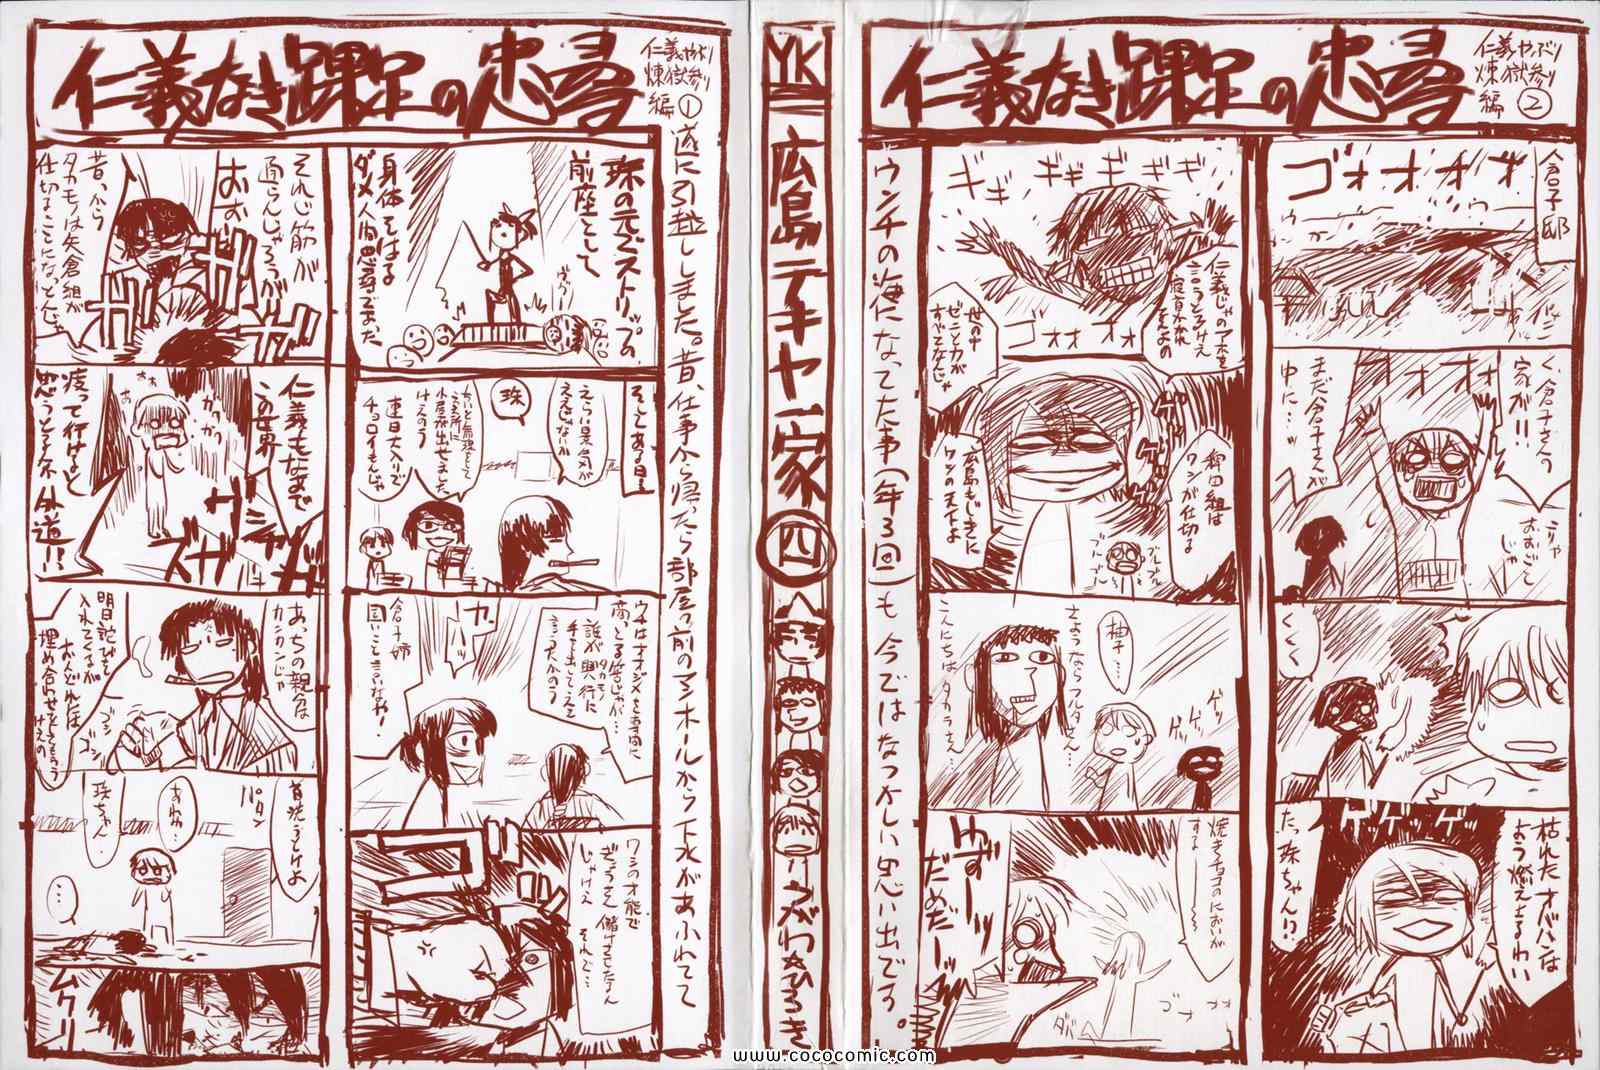 仁義なき踝足の忠尋
仁義やぶり
煉獄参り
編①
遂に引越ししました。昔、仕事から帰ったら部屋の前のマンホールから下水があふれてて
珠の元でストリップの
前座として
身体をはる
ダメ人間忠尋であった
そしてある日
えらい景気が
ええじゃないか
珠
ちいと無理をして
ええ所に
小屋が出せました
けえのう
連日大入りで
チョロイもんじゃ
ウチはオオジメを専門に
商っとる筈じゃ…
誰が興行に
手を出してええと
言うたかのう
倉子姉
固いこと言いなや!
ワシの才能で
ぎょうさん儲けさせたるん
じゃけえ
それで…
それじゃ筋が
通らんじゃろうが
おお
昔っから
タカモノは矢倉組が
仕切ることになっとんじゃ
ガガガガ
仁義もなまで
この世界
渡って行けると
思うとる外道!!
ズガ
あっちの親分は
カンカンじゃ
明日詫びを
入れてくるが
おどれは
埋め合わせをしてもらう
けえの
ゴン
ゴン
首洗うとけよ
パタン
あね…
珠ちゃん
…
ムクリ
YK
広島テキヤ一家
四
うがわひろき
仁義なき踝足の忠尋
仁義やぶり
煉獄参り
編②
倉子邸
ゴォオオオオ
く、倉子さんの
家が!!
まだ倉子さんが
中に…ッ
こりゃ
おおごと
じゃ
くくく
枯れたオバハンは
よう燃えよるわい
ゲッゲッゲッ
たっ珠ちゃん!?
ギギギギギギ
仁義じゃのアホを
言うとるけえ
寝首かかれ
るんよの
世の中
ゼニと力が
すべてなんじゃ
ゴオオオ
稗田組は
ワシが仕切る
広島もじきに
ワシの天下よ
ブルブル
ブルブル
さようならフルタさん…
こんにちはタカラさん…
柚子…
ゲッ
ゲッ
ゲッ
焼きチョコのにおいが
する…
ゆずーッ
だめだーッ
ウンチの海になってた事(年3回)も今ではなつかしい思い出です。
www.cococomic.com